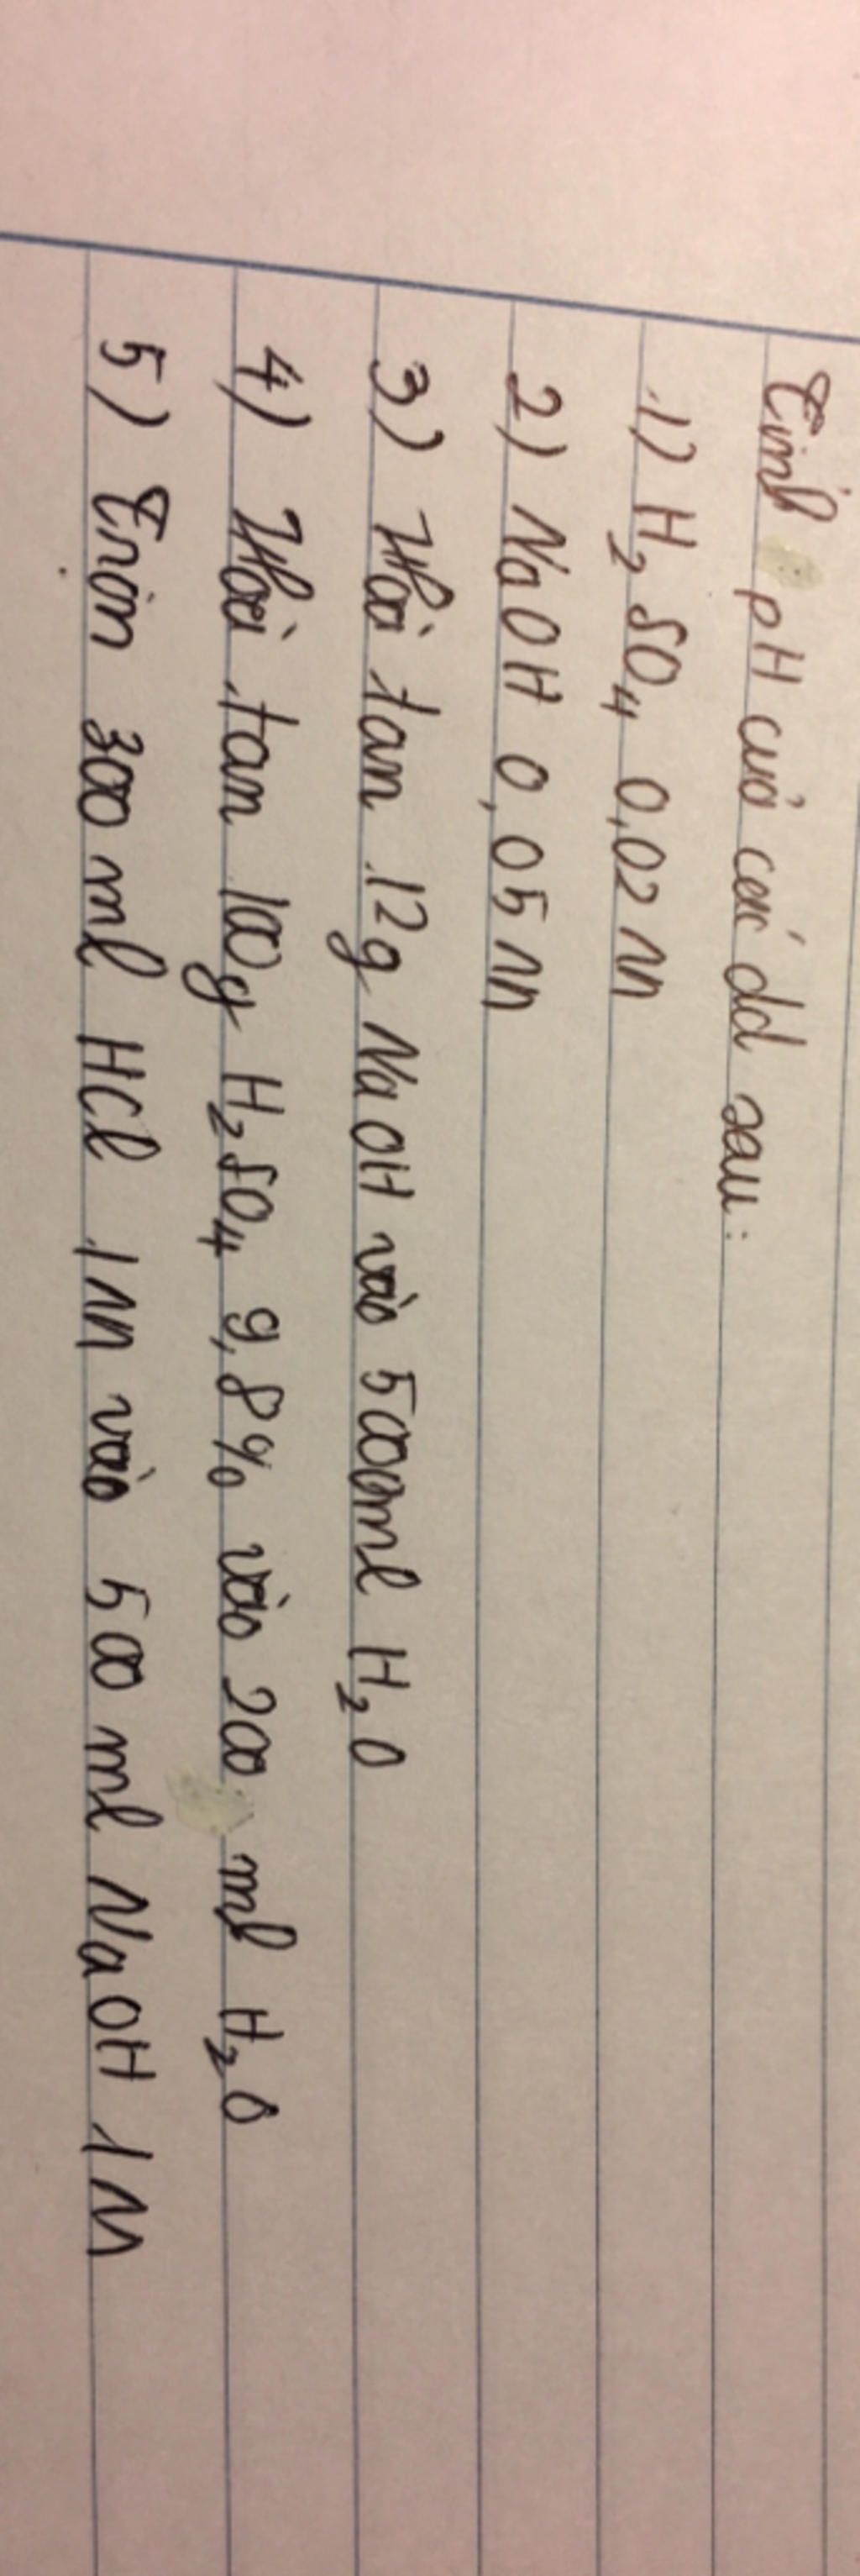 Tính pH của các dd sau:
1) H₂SO₄ 0,02M
2) NaOH 0,05M
3) Hoà tan 12g NaOH vào 500ml H₂O
4) Hoà tan 100g H₂SO₄ 9,8% vào 200 ml H₂O
5) Trộn 300 ml HCl 1M vào 500 ml NaOH 1M